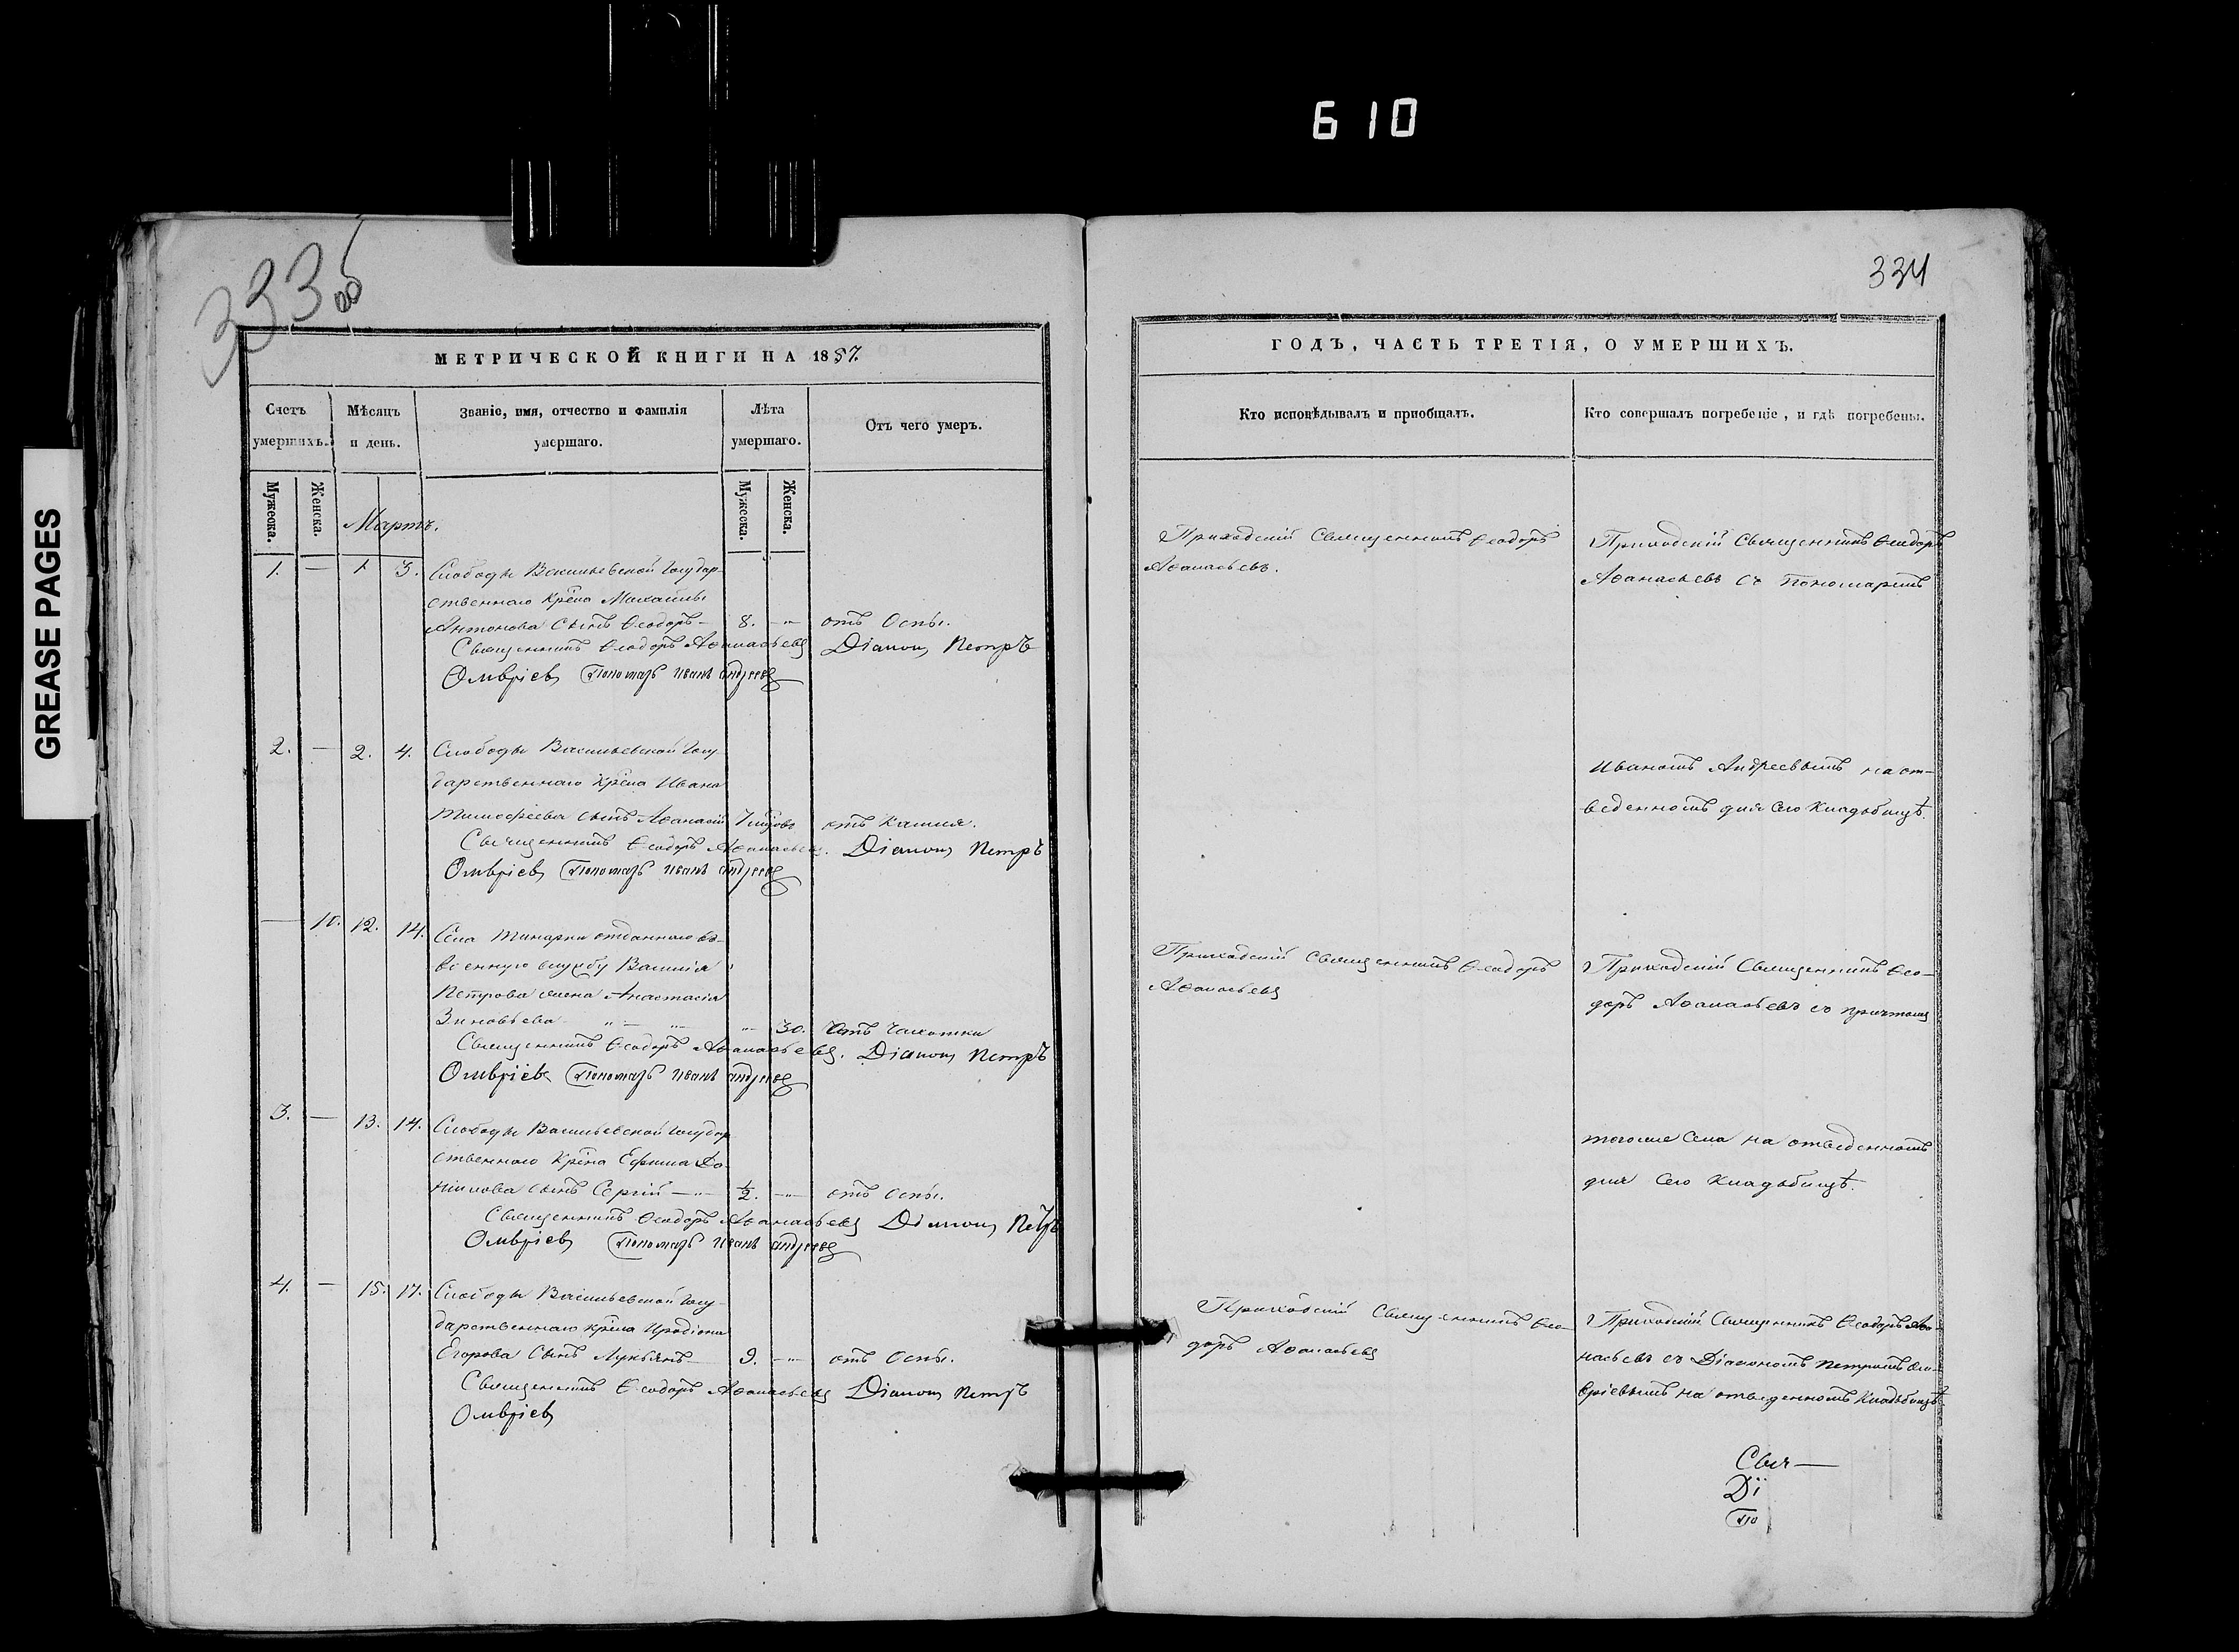 610
GREASE PAGES
333 об
МЕТРИЧЕСКОЙ КНИГИ НА 1857.
Счетъ умершихъ.
Мѣсяцъ и день.
Званіе, имя, отчество и фамилія умершаго.
Лѣта умершаго.
Отъ чего умеръ.
Мужеска.
Женска.
Мартъ.
Мужеска.
Женска.
1. — 1 3. Слободы Васильевской Государ-
ственнаго Крѣна Михаила
Антонова Сынъ Ѳеодоръ — 8. - " - отъ Оспы.
Священникъ Ѳеодоръ Аѳанасьевъ Діаконъ Петръ
Омвріевъ Пономарь Иванъ Андреевъ
2. — 2. 4. Слободы Васильевской Госу-
дарственнаго Крѣна Ивана
Тимоѳеева сынъ Аѳанасій 7 отъ Кашля.
Священникъ Ѳеодоръ Аѳанасьевъ. Діаконъ Петръ
Омвріевъ Пономарь Иванъ Андреевъ
— 10. 12. 14. Села отданнаго въ
военную службу Василія
Петрова жена Анастасія
Зиновьева " — " - " - 30. Отъ Чахотки
Священникъ Ѳеодоръ Аѳанасьевъ. Діаконъ Петръ
Омвріевъ Пономарь Иванъ Андреевъ
3. — 13. 14. Слободы Васильевской Государ
ственнаго Крѣна Ефима До-
нилова сынъ Сергій — " - 1/2. - " - отъ Оспы.
Священникъ Ѳеодоръ Аѳанасьевъ Діаконъ Петръ
Омвріевъ Пономарь Иванъ Андреевъ
4. — 15. 17. Слободы Васильевской Госу-
дарственнаго крѣна Иродіона
Егорова Сынъ Лукьянъ — 9. - " - отъ Оспы.
Священникъ Ѳеодоръ Аѳанасьевъ Діаконъ Петръ
Омвріевъ
334
ГОДЪ, ЧАСТЬ ТРЕТІЯ, О УМЕРШИХЪ.
Кто исповѣдывалъ и пріобщалъ.
Кто совершалъ погребеніе, и гдѣ погребены.
Приходскій Священникъ Ѳеодоръ
Аѳанасьевъ.
Приходскій Священникъ Ѳеодоръ
Аѳанасьевъ съ Пономаремъ
Иваномъ Андреевымъ на от-
веденномъ для сего Кладбищѣ.
Приходскій Священникъ Ѳеодоръ
Аѳанасьевъ
Приходскій Священникъ Ѳео-
доръ Аѳанасьевъ съ причтомъ
тогоже Села на отведенномъ
для сего Кладбищѣ.
Приходскій Священникъ Ѳео-
доръ Аѳанасьевъ
Приходскій Священникъ Ѳеодоръ Аѳа-
насьевъ съ Діакономъ Петромъ Ом-
вріевымъ на отведенномъ Кладбищѣ
Свя —
Ді
По